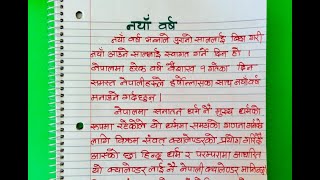 नयाँ वर्ष
नयाँ वर्ष भन्नाले पुरानो साललाई बिदा गरी
नयाँ आउने साललाई स्वागत गर्ने दिन हो ।
नेपालमा हरेक वर्ष बैशाख १ गतेका दिन
समस्त नेपालीहरूले हर्षोल्लासका साथ नयाँ वर्ष
मनाउने गर्दछन् ।
नेपालमा सनातन धर्म नै मुख्य धर्मको
रूपमा रहेकोले यो धर्ममा समयको गणना गर्नको
लागि विक्रम संवत् क्यालेण्डरको प्रयोग गरिँदै
आएको छ। हिन्दू धर्म र परम्परामा आधारित
यो क्यालेण्डर नै नेपाली क्यालेण्डर